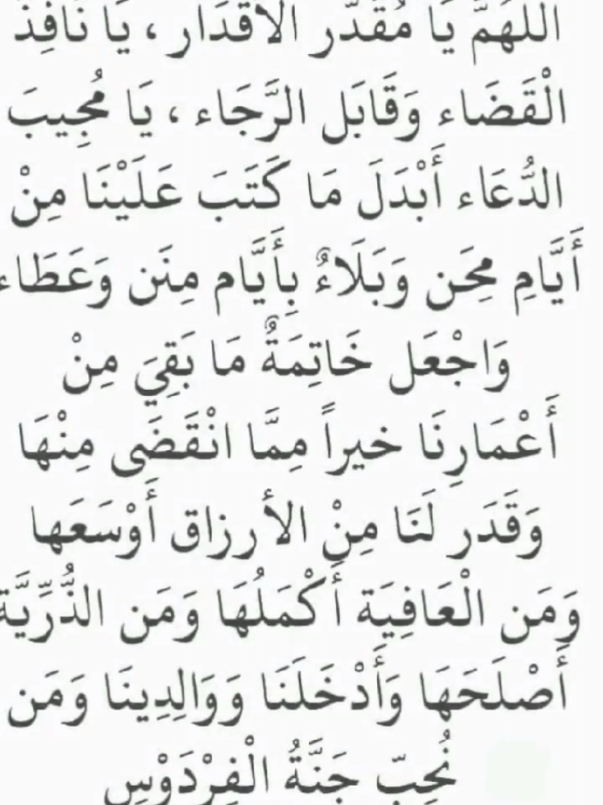 اللَّهُمَّ يَا مُقَدَّر الأَقْدَار ، يَا نَافِذَ
الْقَضَاء وَقَابَل الرَّجَاء ، يَا مُجِيبَ
الدُّعَاء أَبْدَلَ مَا كَتَبَ عَلَيْنَا مِنْ
أَيَّامِ مِحَن وَبَلَاءٌ بِأَيَّام مِنَن وَعَطَاء
وَاجْعَل خَاتِمَةٌ مَا بَقِيَ مِنْ
أَعْمَارِنَا خيراً مِمَّا انْقَضَى مِنْهَا
وَقَدَر لَنَا مِنْ الأرزاق أَوْسَعَها
وَمَن الْعَافِيَة أَكْمَلُهَا وَمَن الذُّرِّيَّة
أَصْلَحَهَا وَأَدْخَلَنَا وَوَالِدِينَا وَمَن
نُحِبّ جَنَّةُ الْفِرْدَوْسِ